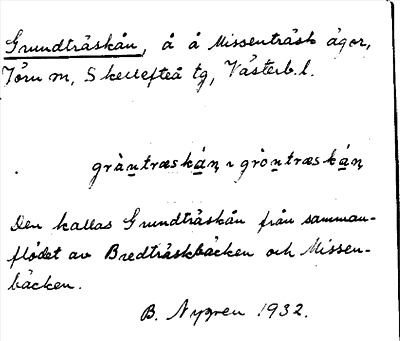 Grundträskån, å å Missenträsk ägor,
Jörn m, Skellefteå tg, Västerb. l.
gràn̲træskán̲ ~ gròn̲træskán̲
Den kallas Grundträskån från samman-
flödet av Bredträskbäcken och Missen-
bäcken.
B. Nygren 1932.